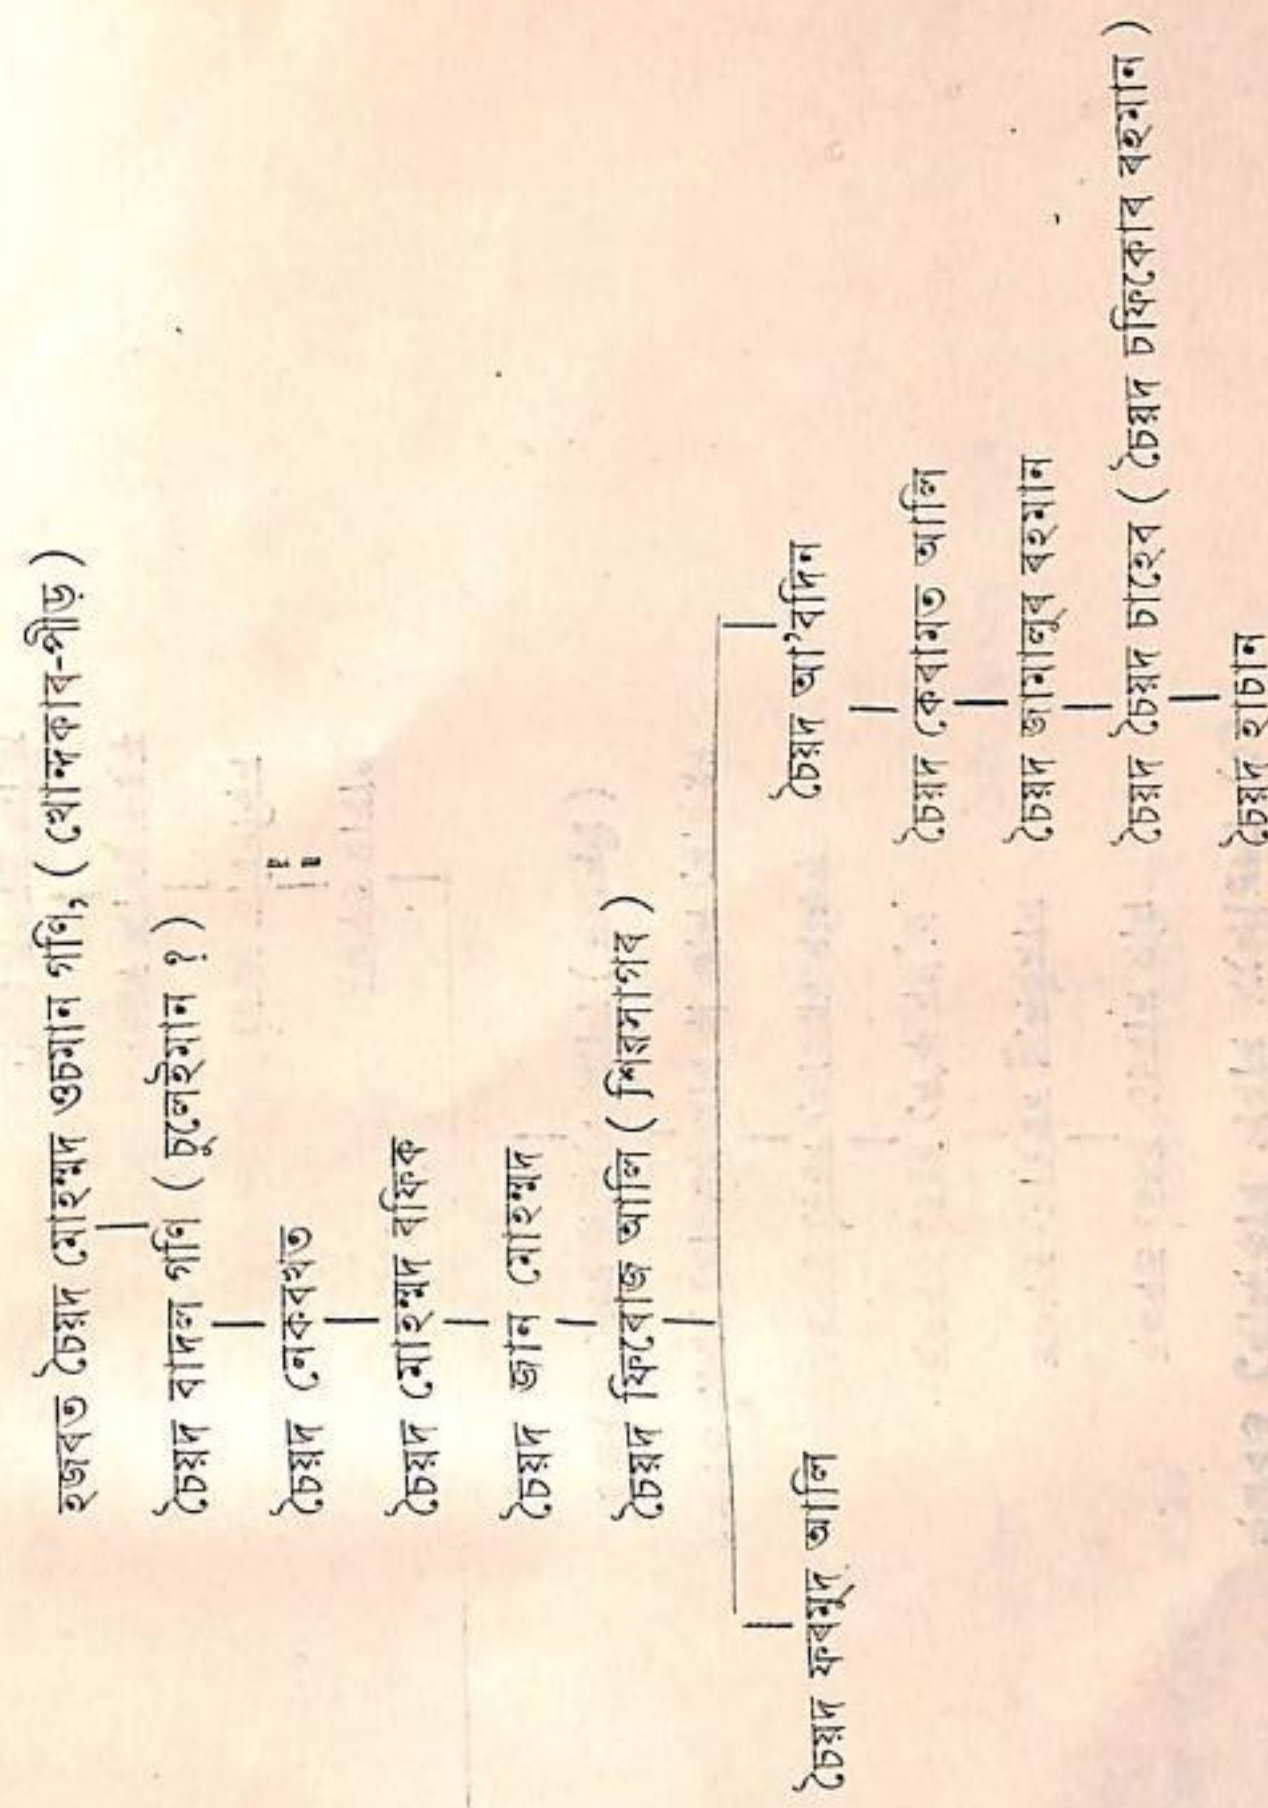 হজৰত চৈয়দ মোহম্মদ ওচমান গণি, ( খোন্দকাৰ-পীড় )
চৈয়দ বাদল গণি ( চুলেইমান ? )
চৈয়দ নেকবখত
চৈয়দ মোহম্মদ ৰফিক
চৈয়দ জান মোহম্মদ
চৈয়দ ফিৰোজ আলি ( শিৱসাগৰ )
চৈয়দ ফৰমুদ আলি
চৈয়দ আ’ৰদিন
চৈয়দ কেৰামত আলি
চৈয়দ জামানুৰ ৰহমান
চৈয়দ চৈয়দ চাহেব ( চৈয়দ চফিকোৰ ৰহমান )
চৈয়দ হাচান